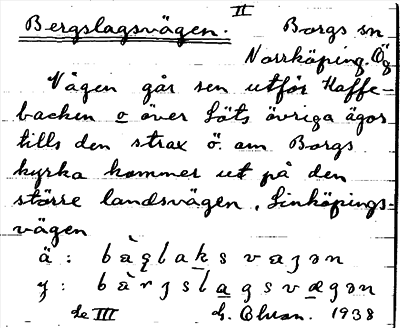 II
Bergslagsvägen. Borgs sn
Norrköping. Ög
Vägen går sen utför Kaffe-
backen o över Löts övriga ägor
tills den strax ö. om Borgs
kyrka kommer ut på den
större landsvägen, Linköpings-
vägen
ä :
y :
se III 1938